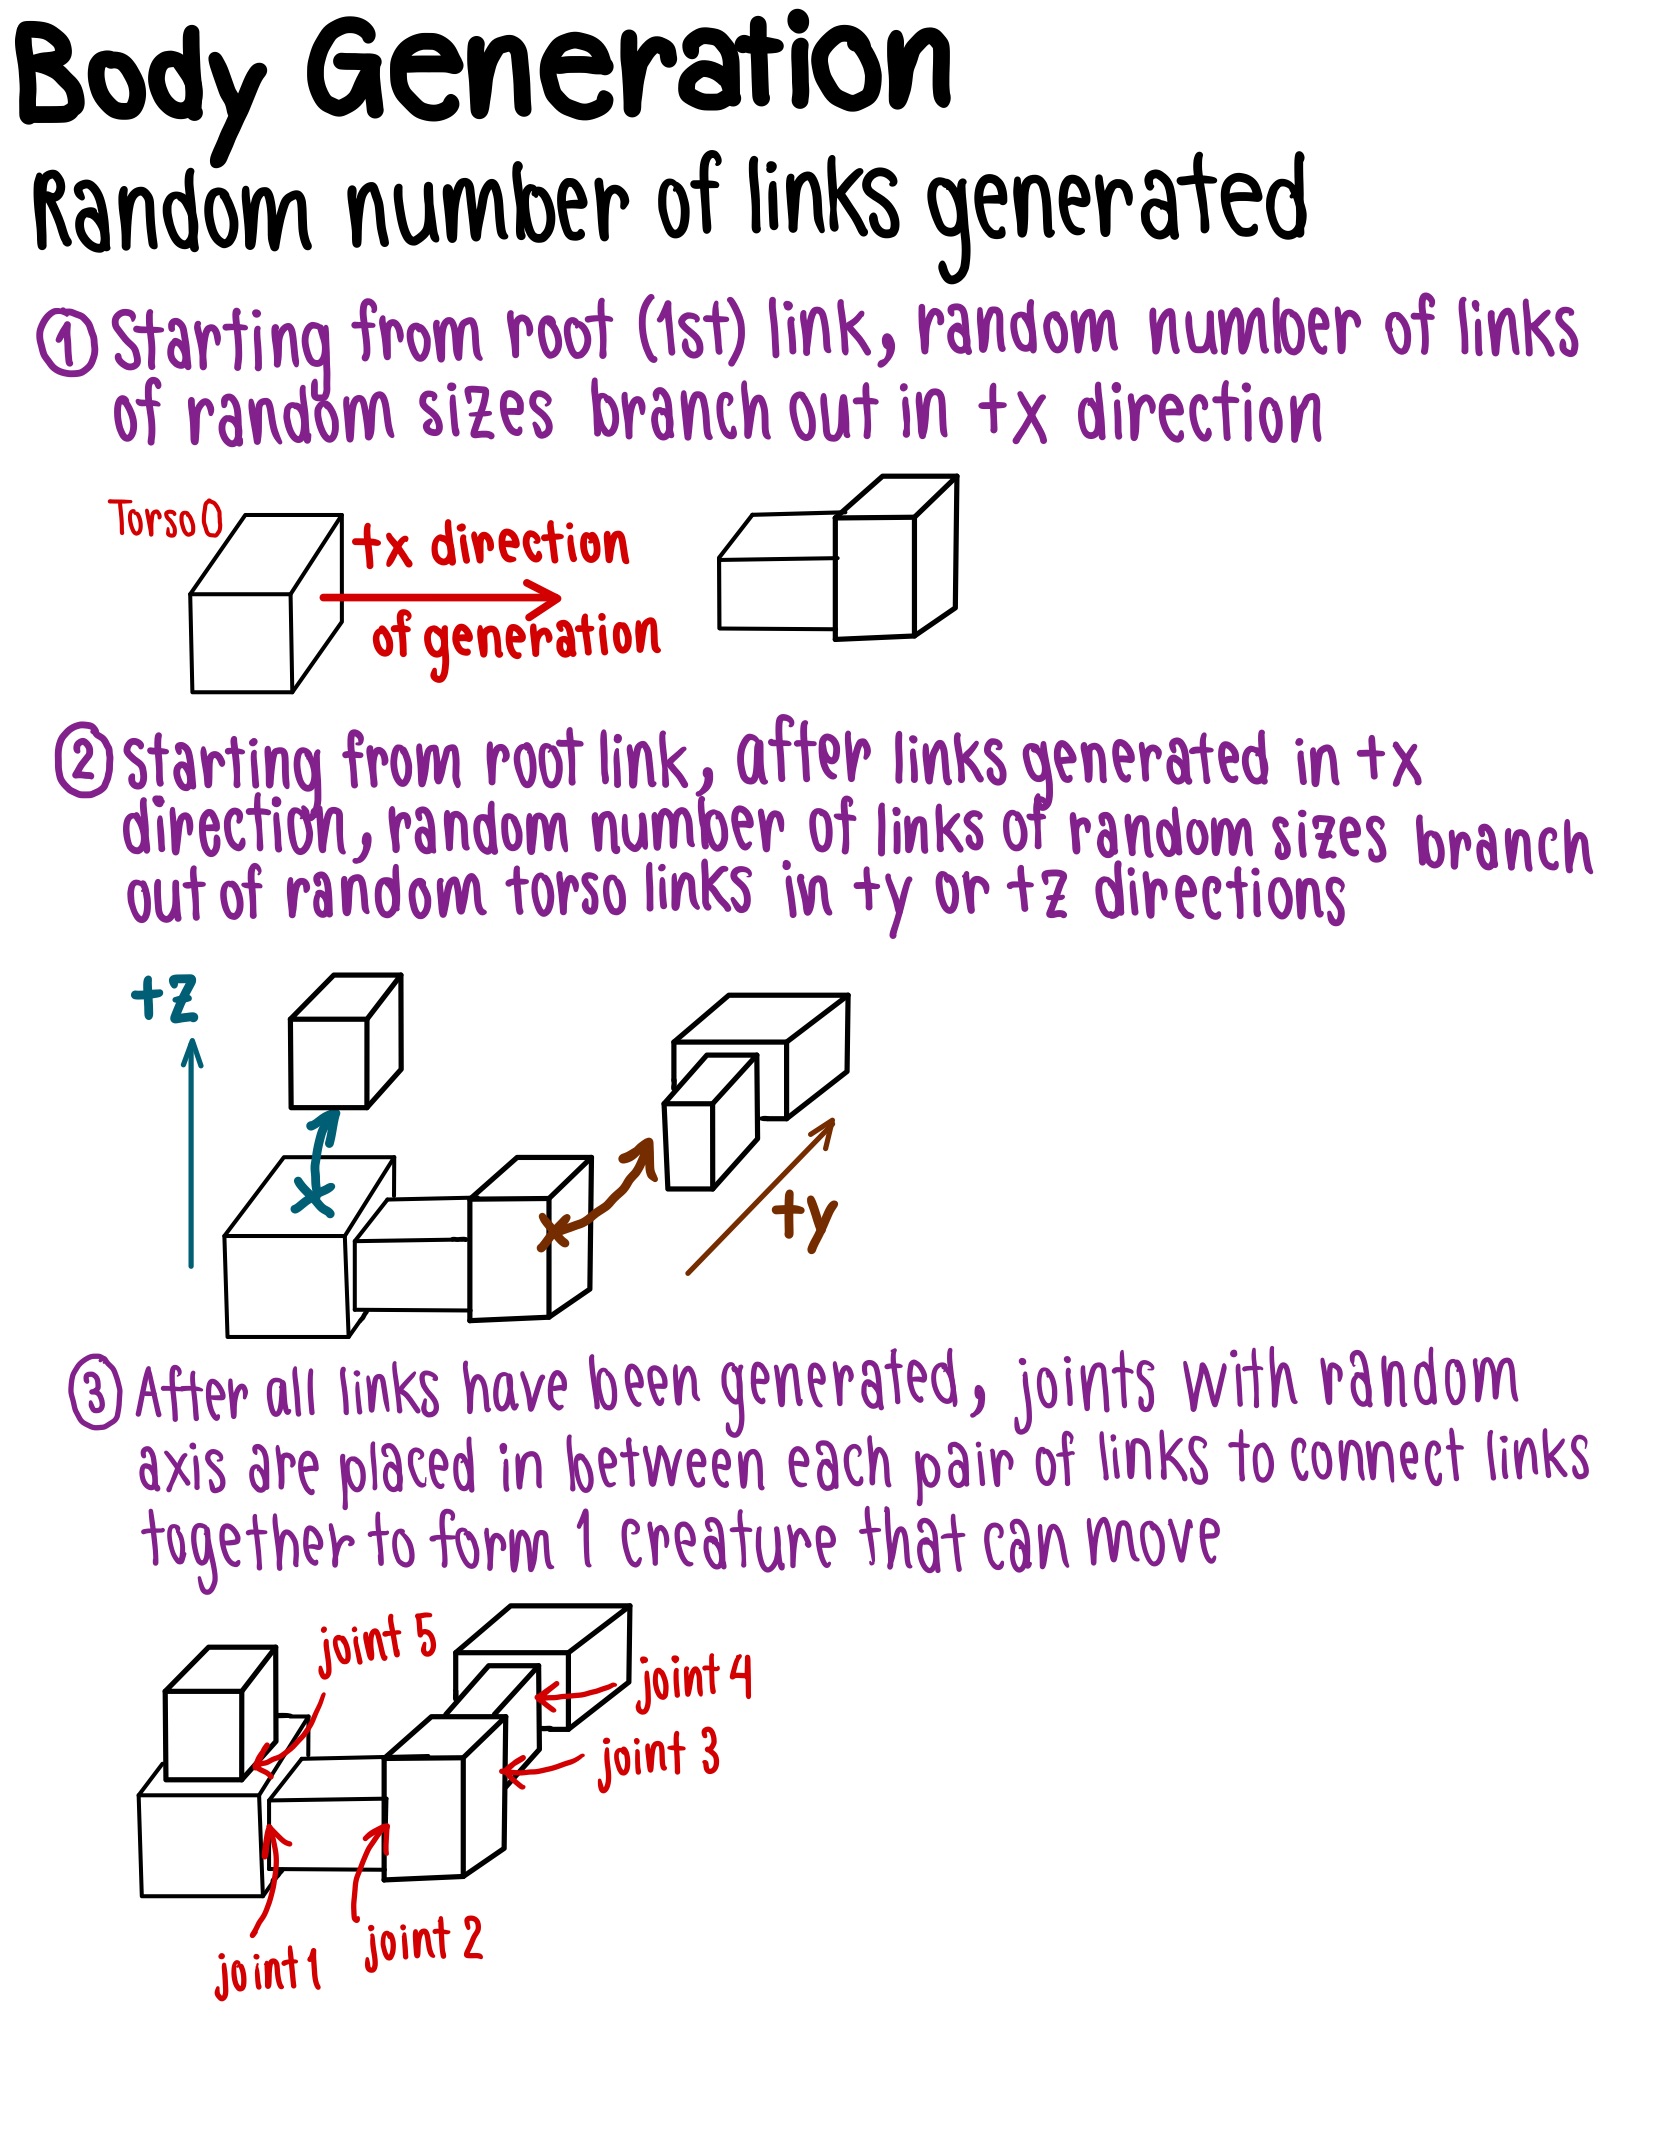 Body Generation
Random number of links generated
① Starting from root (1st) link, random number of links
of random sizes branch out in +x direction
Torso 0
+x direction
of generation
② Starting from root link, after links generated in +x
direction, random number of links of random sizes branch
out of random torso links in +y or +z directions
+z
x
x
+y
③ After all links have been generated, joints with random
axis are placed in between each pair of links to connect links
together to form 1 creature that can move
joint 5
joint 4
joint 3
joint 2
joint 1